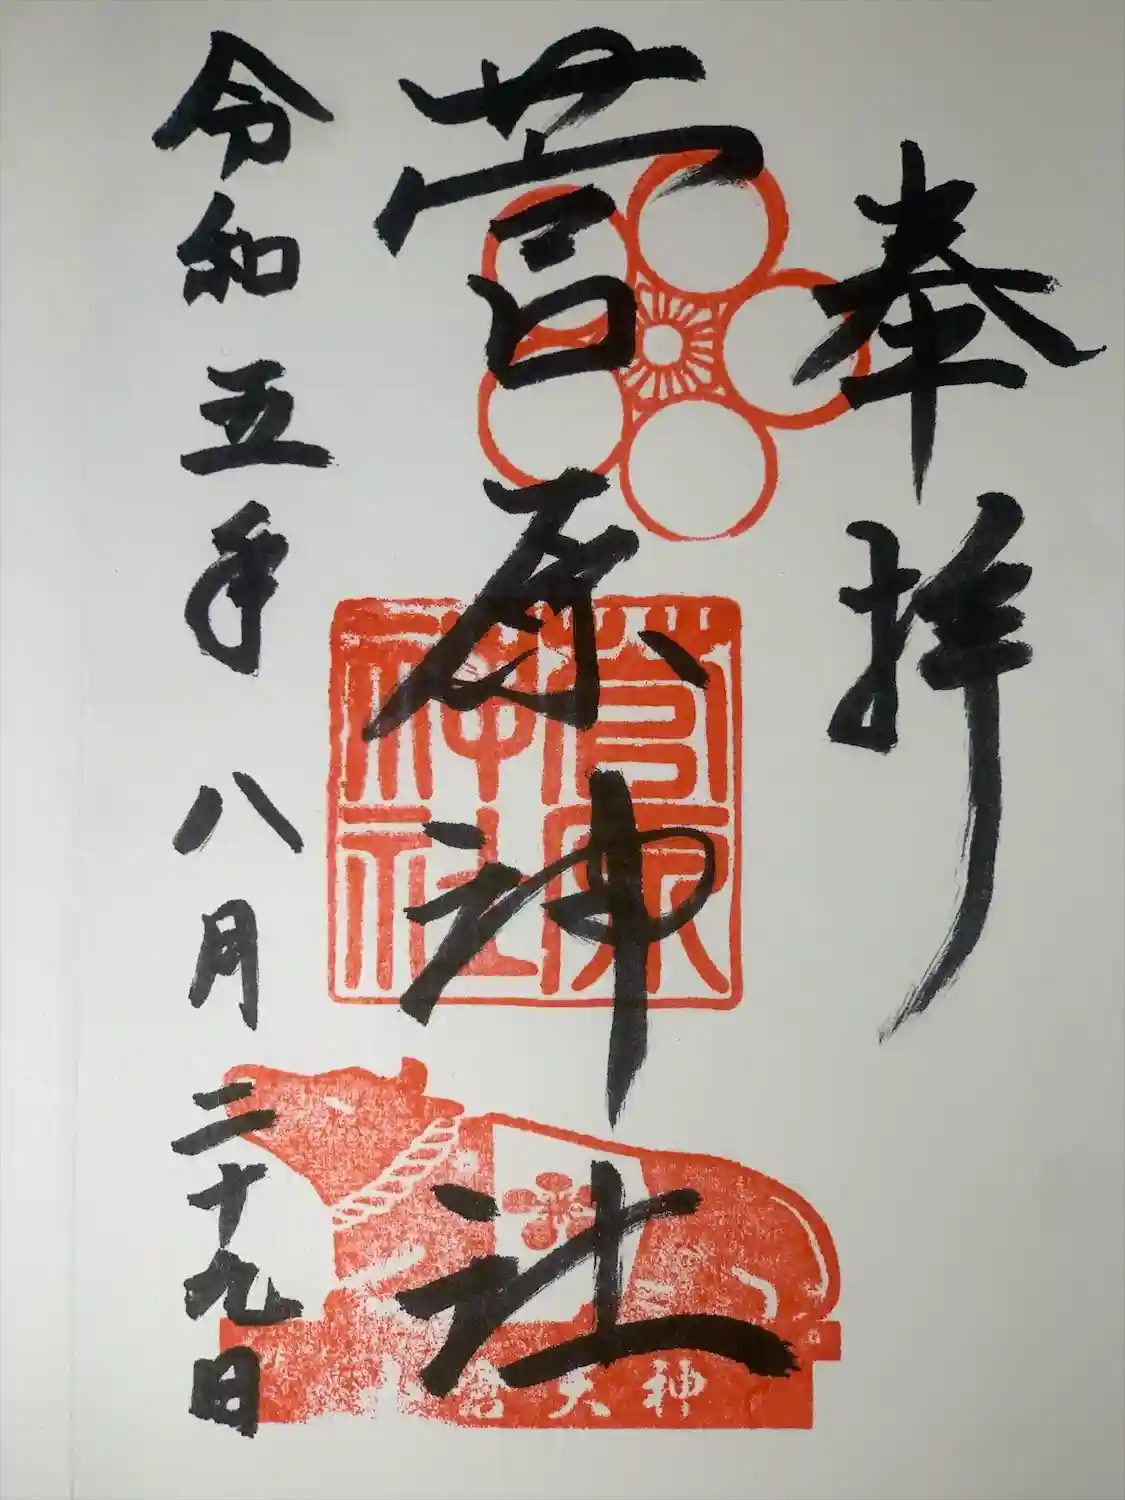 奉拝
菅原神社
令和五年八月二十九日
菅原神社
神天